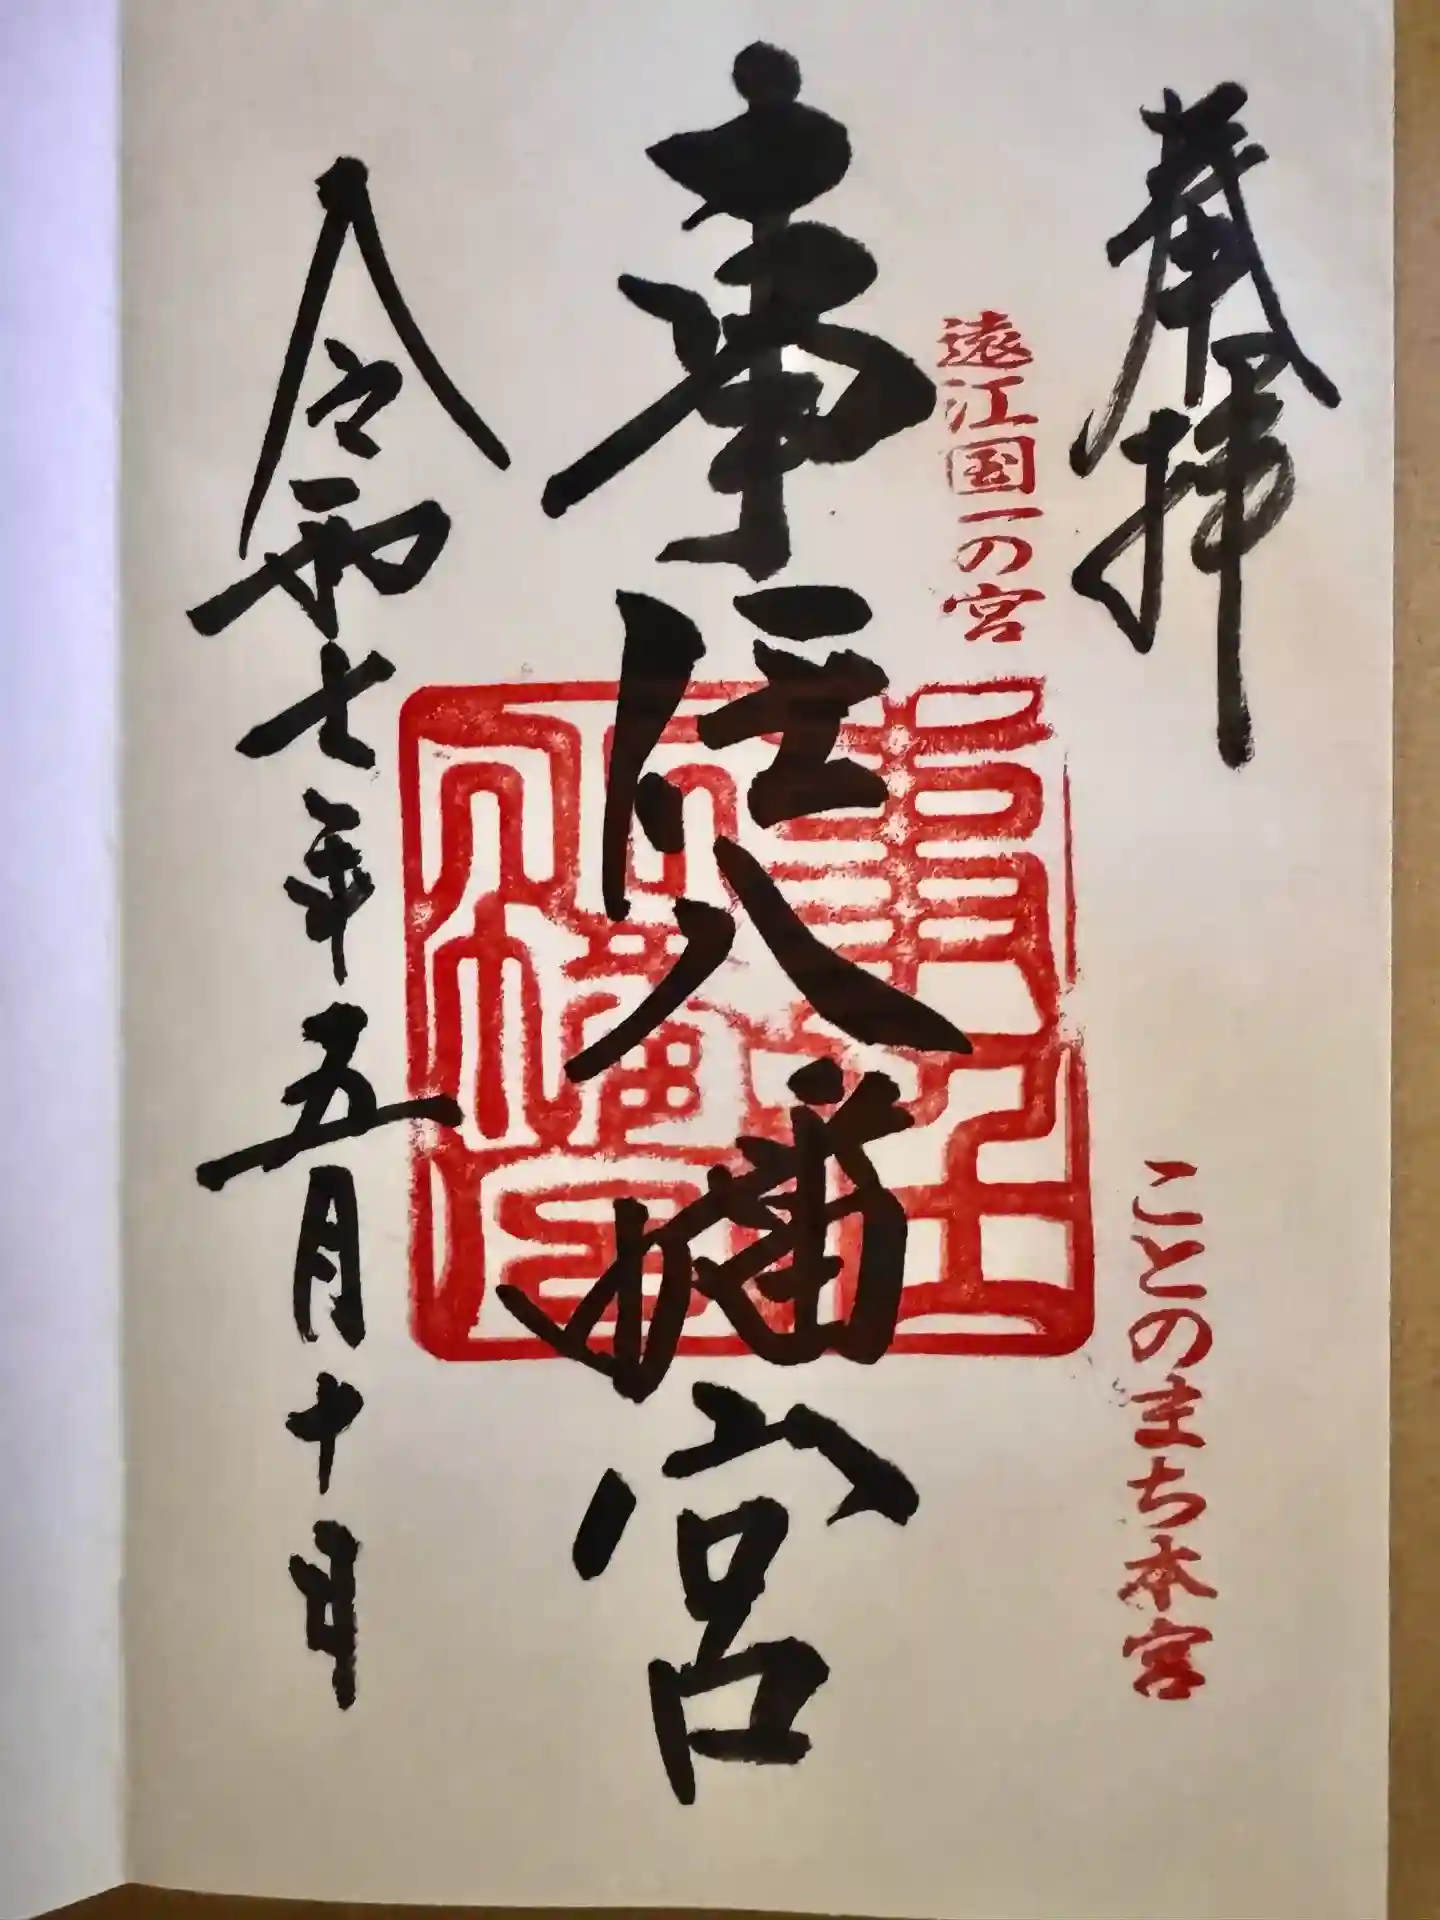 奉拝
遠江国一の宮
ことのまち本宮
事任八幡宮
事任八幡宮
令和七年五月十日